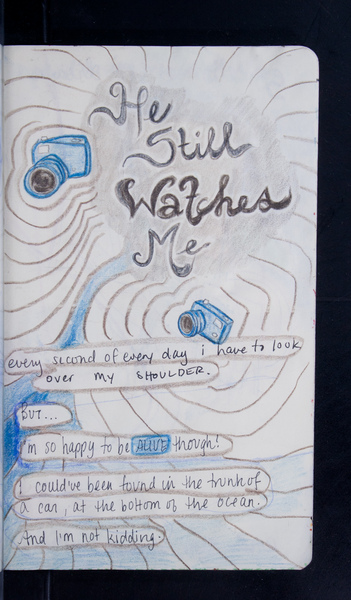 He
Still
Watches
Me
every second of every day i have to look
over my SHOULDER.
BUT...
I'm so happy to be ALIVE though!
I could've been found in the trunk of
a car, at the bottom of the ocean.
And I'm not kidding.